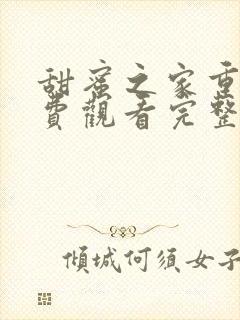 甜蜜之家重
費觀看完整
傾城何須女子